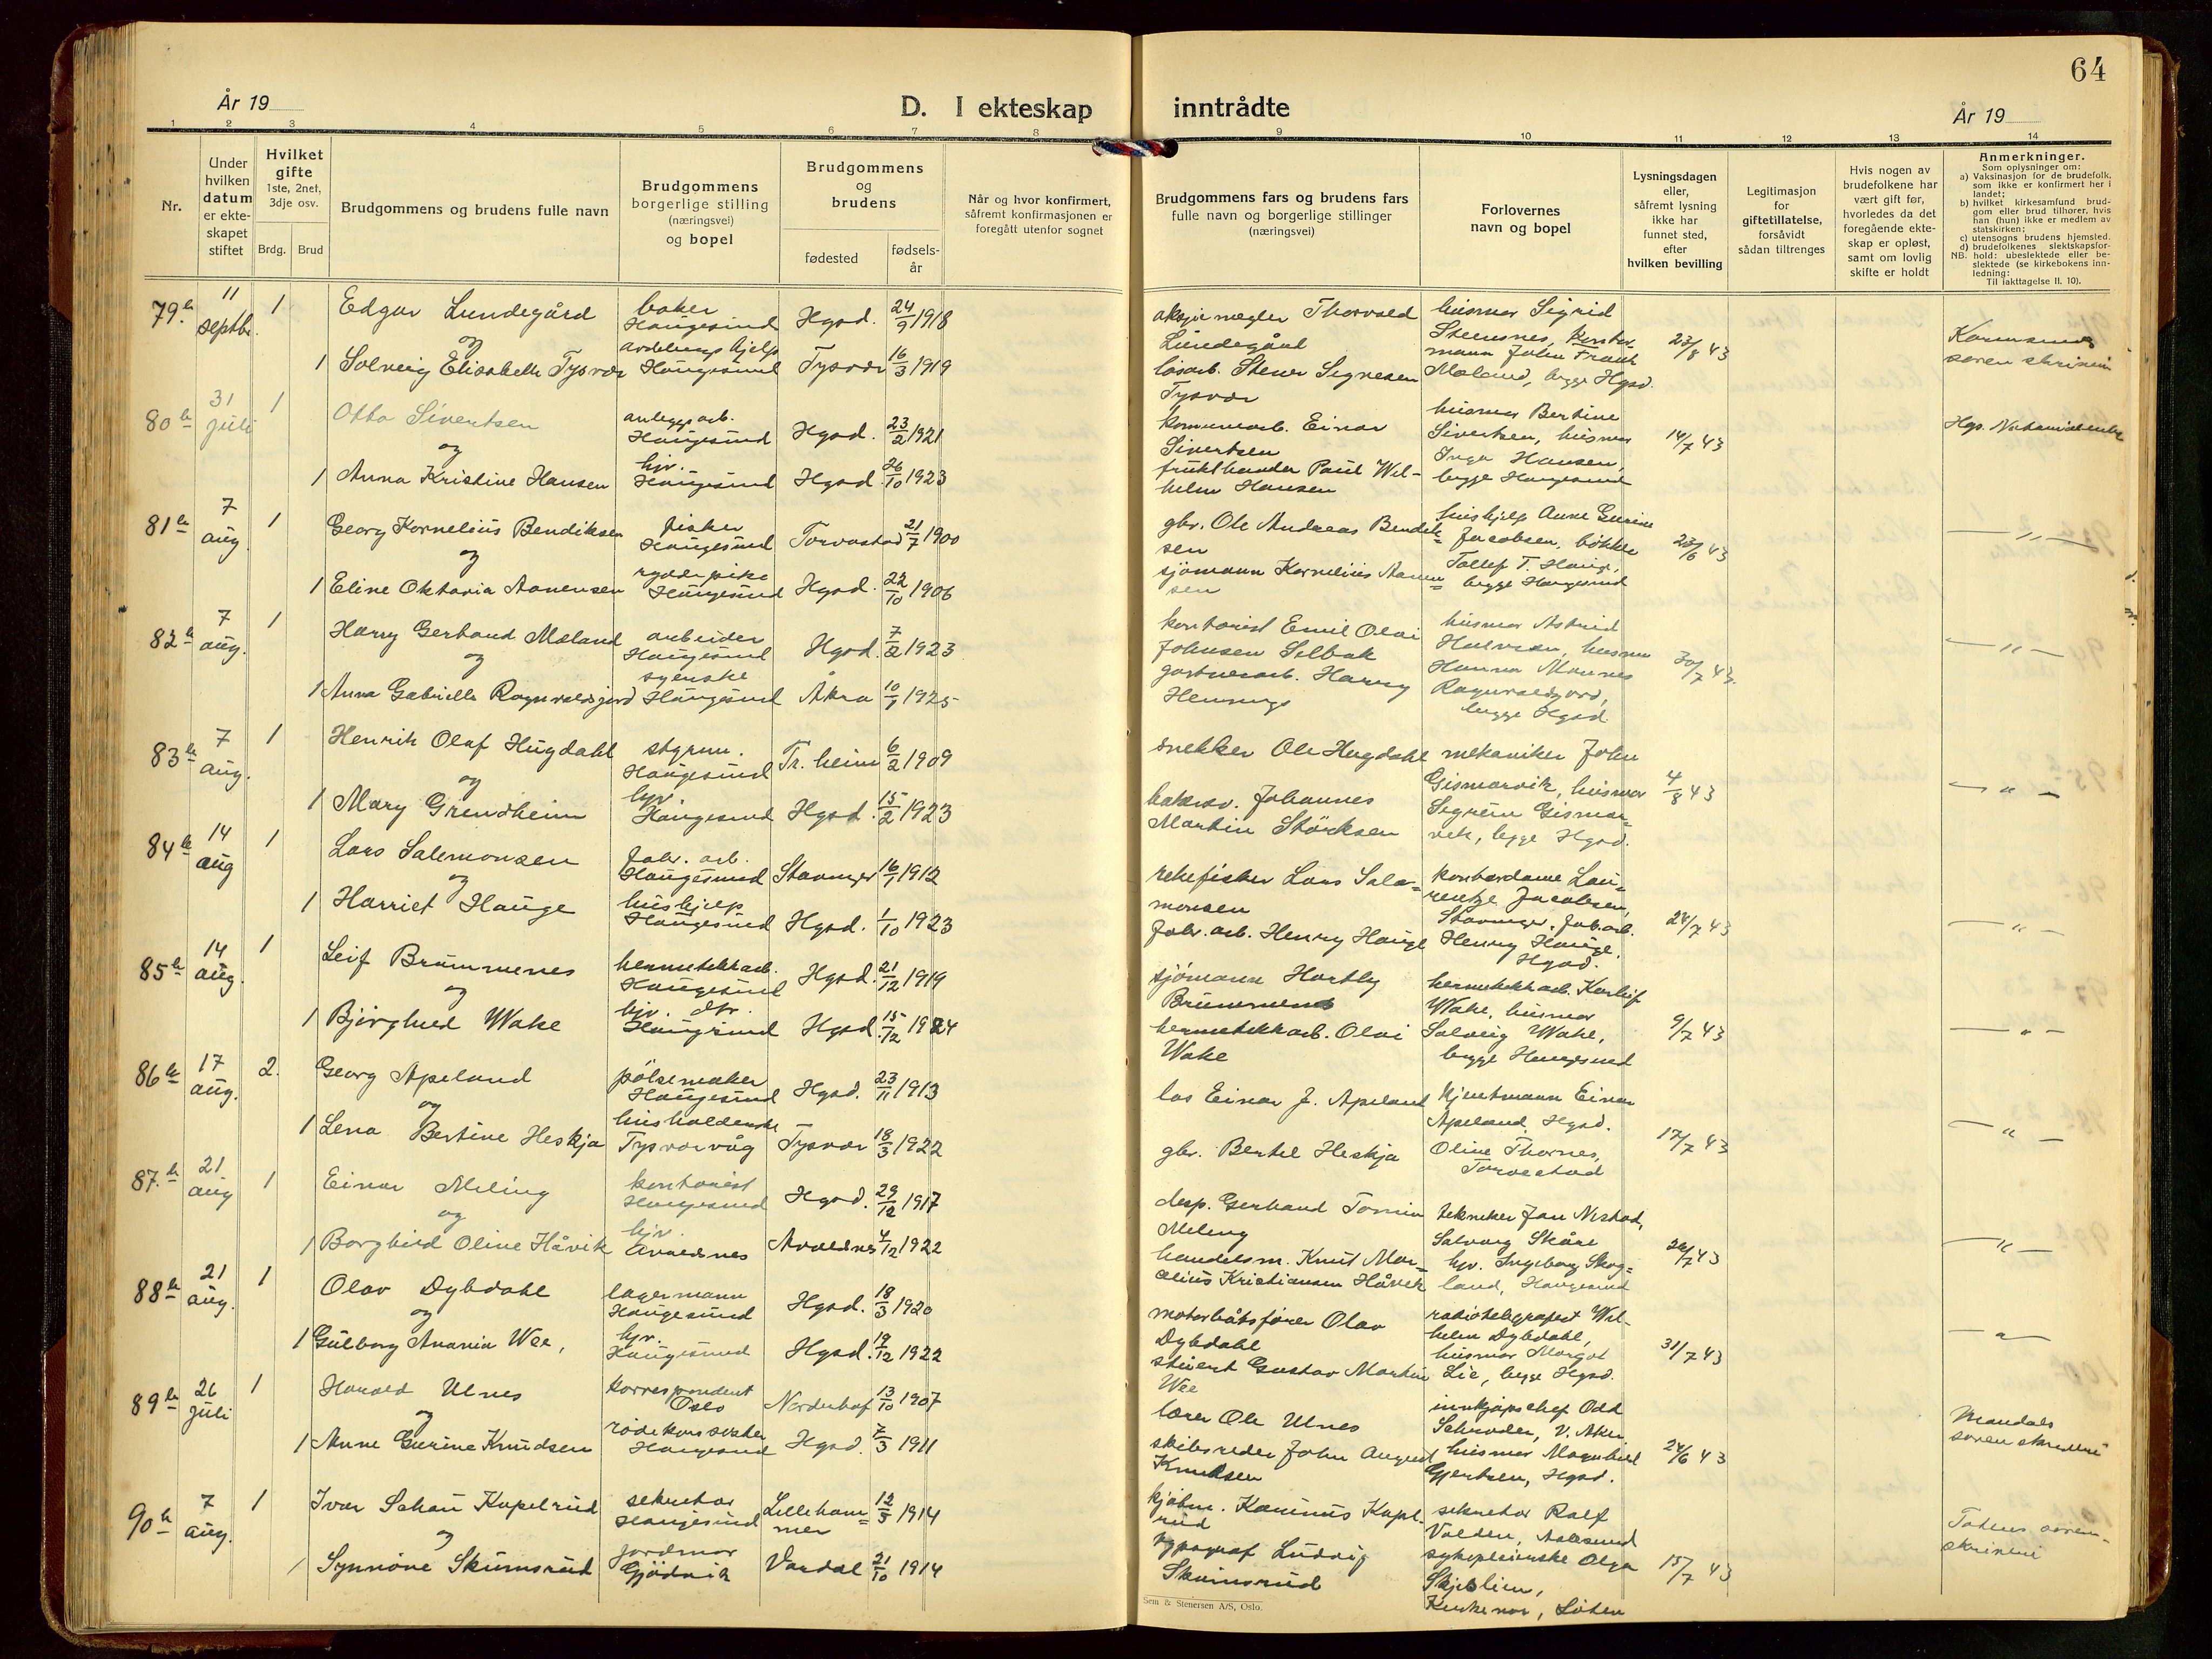 64
År 19
D. I ekteskap inntrådte
År 19
1 2 3 4 5 6 7 8 9 10 11 12 13 14
Nr.
Under hvilken datum er ekteskapet stiftet
Hvilket gifte
1ste, 2net, 3dje osv.
Brdg. Brud
Brudgommens og brudens fulle navn
Brudgommens borgerlige stilling (næringsvei) og bopel
Brudgommens og brudens
fødested
fødsels-år
Når og hvor konfirmert, såfremt konfirmasjonen er foregått utenfor sognet
Brudgommens fars og brudens fars fulle navn og borgerlige stillinger (næringsvei)
Forlovernes navn og bopel
Lysningsdagen eller, såfremt lysning ikke har funnet sted, efter hvilken bevilling
Legitimasjon for giftetillatelse, forsåvidt sådan tiltrenges
Hvis nogen av brudefolkene har vært gift før, hvorledes da det foregående ekteskap er opløst, samt om lovlig skifte er holdt
Anmerkninger.
Som oplysninger om:
a) Vaksinasjon for de brudefolk, som ikke er konfirmert her i landet;
b) hvilket kirkesamfund brudgom eller brud tilhører, hvis han (hun) ikke er medlem av statskirken;
c) utensogns brudens hjemsted.
d) brudefolkenes slektskapsforhold: ubeslektede eller beslektede (se kirkebokens innledning:
NB.
Til iakttagelse II. 10).
79 11 septbr. 1 Edgar Lundegård baker Haugesund Hgsd. 24/9 1918
og
1 Solveig Elisabeth Tysvær Haugesund Tysvær 16/3 1919
Thorvald Lundegård
Stener Signesen Tysvær
husmor Sigrid Stensnes, John Frank Mæland, begge Hgsd.
23/8 43
80 31 juli 1 Otto Sivertsen anleggsarb. Haugesund Hgsd. 23/2 1921
og
1 Anna Kristine Hansen hjv. Haugesund Hgsd. 26/10 1923
Einar Sivertsen
Paul Wilhelm Hansen
husmor Bertine Sivertsen, husmor Inga Hansen, begge Haugesund
14/7 43
81 7 aug. 1 Georg Kornelius Bendiksen fisker Haugesund Torvastad 21/7 1900
og
1 Eline Oktavia Aanensen Haugesund Hgsd. 22/10 1906
gbr. Ole Andreas Bendiksen
sjømann Kornelius Aanensen
hushjelp Anne Gurine Jacobsen, bøkker Tollef T. Hauge, begge Haugesund
23/6 43
— „ —
82 7 aug. 1 Harry Gerhard Mæland arbeider Haugesund Hgsd. 7/2 1923
og
1 Anna Gabrielle Ragnvaldsjord syerske Haugesund Åkra 10/7 1925
kontorist Emil Olai Johnsen Selbak
gartnerarb. Harry Hennings
husmor Astrid Halvorsen, husmor Hanna Ragnvaldsjord, begge Hgsd.
30/7 43.
— „ —
83 7 aug. 1 Henrik Olaf Hugdahl styrm. Haugesund Tr.heim 6/2 1909
og
1 Mary Grindheim hjv. Haugesund Hgsd. 15/2 1923
snekker Ole Hugdahl
Johannes Martin Størksen
mekaniker John Gismarvik, husmor Sigrun Gismarvik, begge Hgsd.
4/8 43
— „ —
84 14 aug 1 Lars Salomonsen fabr. arb. Haugesund Stavanger 16/7 1912
og
1 Harriet Hauge hushjelp Haugesund Hgsd. 1/10 1923
rekefisker Lars Salomonsen
fabr. arb. Henry Hauge
kontordame Laurentze Jacobsen, Stavanger, fab. arb. Henry Hauge, Hgsd.
24/7 43
— „ —
85 14 aug. 1 Leif Brummenes hermetikkarb. Haugesund Hgsd. 21/12 1919
og
1 Bjørghild Wake hjv. Haugesund Hgsd. 15/12 1924
sjømann Hartly Brummenes
hermetikkarb. Olai Wake
hermetikkarb. Karleif Wake, husmor Solveig Wake, begge Haugesund
9/7 43
— „ —
86 17 aug. 2. Georg Apeland pølsemaker Haugesund Hgsd. 23/11 1913
og
1 Lena Bertine Heskja husholderske Tysværvåg Tysvær 18/3 1922
los Einar J. Apeland
gbr. Bertel Heskja
Einar Apeland, Hgsd.
Oline Thornes, Torvestad
17/7 43
— „ —
87. 21 aug 1 Einar Meling kontorist Haugesund Hgsd. 29/12 1917
og
1 Borghild Oline Håvik hjv. Avaldsnes Avaldsnes 4/12 1922
disp. Gerhard Tornin Meling
handelsm. Knut Marselius Kristiansen Håvik
tekniker Jan Nistad, Solvorg Skåre
hjv. Ingeborg Skogland, Haugesund
26/7 43
— „ —
88 21 aug. 1 Olav Dybdahl lagermann Haugesund Hgsd. 18/3 1920
og
1 Gulborg Anania Wee, hjv. Haugesund Hgsd. 19/12 1922
motorbåtsfører Olav Dybdahl
stuert Gustav Martin Wee
radiotelegrafist Wilhelm Dybdahl, husmor Margot Lie, begge Hgsd.
31/7 43
— „ —
89 26 juli 1 Harald Ulnes korrespondent Oslo Norderhof 13/10 1907
og
1 Anne Gurine Knudsen Haugesund Hgsd. 7/3 1911
lærer Ole Ulnes
skibsreder John August Knudsen
innkjøpschef Odd Schrøder, V. Aker, husmor Magnhild Gjertsen, Hgsd.
24/6 43
Mandals sorenskriveri
90 7 aug. 1 Ivar Schau Kapelrud sekretær Haugesund Lillehammer 12/5 1914
og
1 Synnøve Skumsrud jordmor Gjøvik Vardal 21/10 1914
kjøbm. Kapelrud
typograf Ludvig Skumsrud
sekretær Rolf Volden, Aalesund
sykepleierske Olga Skjeblien, Løten
15/7 43
Totens sorenskriveri
Sem & Stenersen A/S, Oslo.